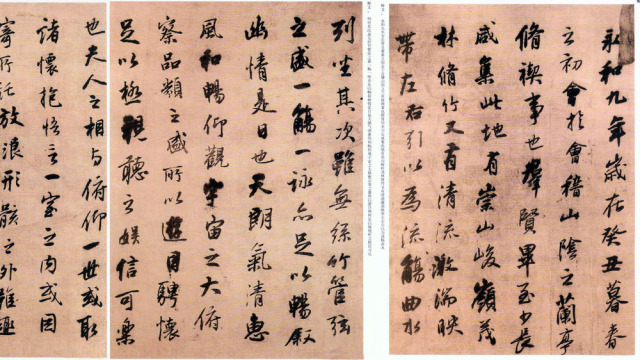 永和九年歲在癸丑暮春
之初會於會稽山陰之蘭亭
脩禊事也羣賢畢至少長
咸集此地有崇山峻嶺茂
林脩竹又有清流激湍映
帶左右引以為流觴曲水
列坐其次雖無絲竹管弦
之盛一觴一詠亦足以暢敘
幽情是日也天朗氣清惠
風和暢仰觀宇宙之大俯
察品類之盛所以遊目騁懷
足以極視聽之娛信可樂
也夫人之相与俯仰一世或取
諸懷抱悟言一室之內或因
寄所託放浪形骸之外雖趣